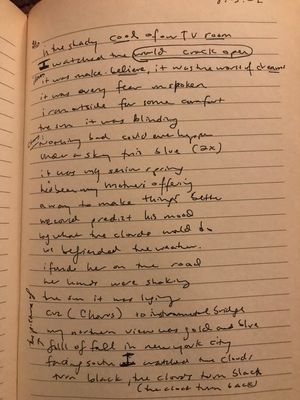 In the shady cool of our TV room
I watched the world crack open
it was make believe, it was the world of dreams
it was every fear unspoken
i ran outside for some comfort
the sun it was blinding
nothing bad could ever happen
under a sky this blue (2x)
it was my senior spring
had been my mother's offering
a way to make things better
we could predict his mood
by what the clouds would do
we befriended the weather.
i found her on the road
her hands were shaking
the sun it was lying
cuz (Chorus) to instrumental bridge
my northern view was gold and blue
full of fall in new york city
facing south I watched the clouds
turn black, the clouds turn black
(the clouds turn back)